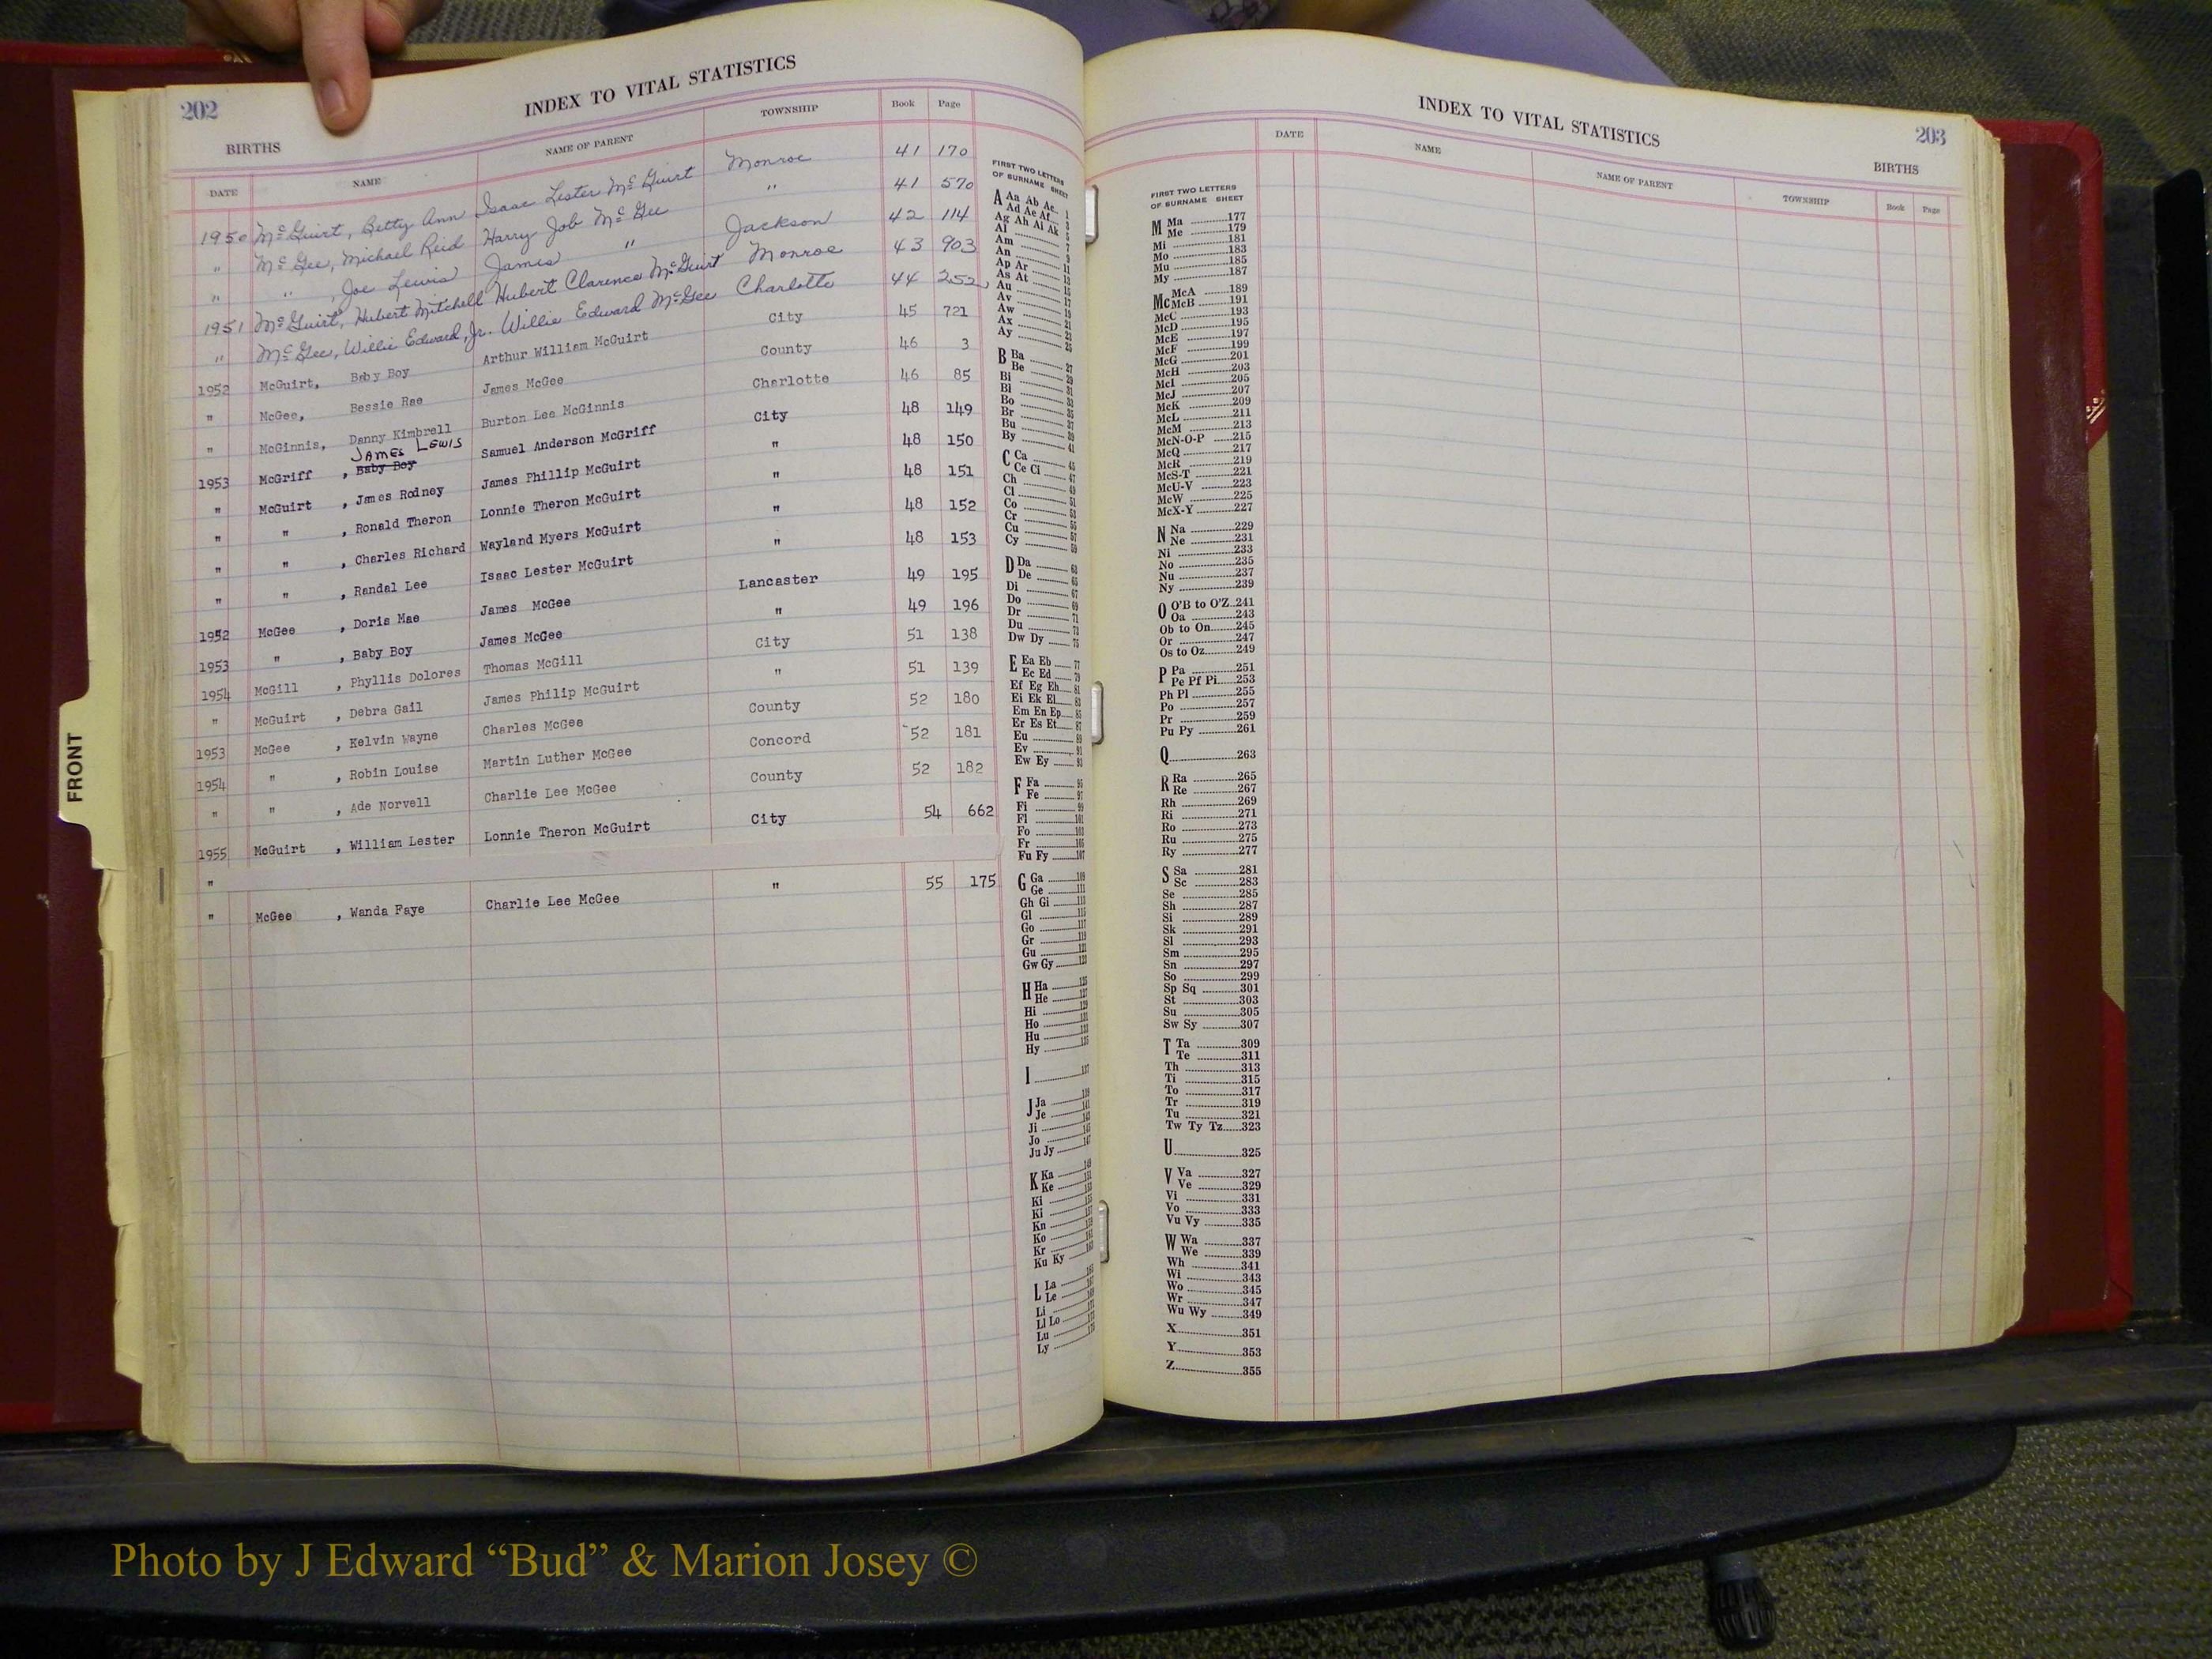 202
INDEX TO VITAL STATISTICS
BIRTHS
DATE NAME NAME OF PARENT TOWNSHIP Book Page
1950 McGuirt, Betty Ann Isaac Lester McGuirt Monroe 41 170
" McGee, Michael Reid Harry Job McGee " 41 570
" " , Joe Lewis James " Jackson 42 114
1951 McGuirt, Hubert Mitchell Hubert Clarence McGuirt Monroe 43 903
" McGee, Willie Edward, Jr. Willie Edward McGee Charlotte 44 252
1952 McGuirt, Baby Boy Arthur William McGuirt City 45 721
" McGee, Bessie Rae James McGee County 46 3
" McGinnis, Danny Kimbrell Burton Lee McGinnis Charlotte 46 85
JAMES LEWIS
1953 McGriff , Baby Boy Samuel Anderson McGriff City 48 149
" McGuirt , James Rodney James Phillip McGuirt " 48 150
" " , Ronald Theron Lonnie Theron McGuirt " 48 151
" " , Charles Richard Wayland Myers McGuirt " 48 152
" " , Randal Lee Isaac Lester McGuirt " 48 153
1952 McGee , Doris Mae James McGee Lancaster 49 195
1953 " , Baby Boy James McGee " 49 196
1954 McGill , Phyllis Dolores Thomas McGill City 51 138
" McGuirt , Debra Gail James Philip McGuirt " 51 139
1953 McGee , Kelvin Wayne Charles McGee County 52 180
1954 " , Robin Louise Martin Luther McGee Concord 52 181
" " , Ade Norvell Charlie Lee McGee County 52 182
1955 McGuirt , William Lester Lonnie Theron McGuirt City 54 662
"
" McGee , Wanda Faye Charlie Lee McGee " 55 175
FRONT
FIRST TWO LETTERS
OF SURNAME SHEET
A Aa Ab Ac 1
Ad Ae Af 3
Ag Ah Ai Ak 5
Al 7
Am 9
An
Ap Ar 11
As At
Au
Av
Aw
Ax
Ay
B Ba 27
Be 29
Bi
Bl
Bo
Br
Bu
By 41
C Ca
Ce Ci
Ch
Cl
Co
Cr
Cu
Cy
D Da
De
Di
Do
Dr
Du
Dw Dy
E Ea Eb 77
Ec Ed 79
Ef Eg Eh 81
Ei Ek El
Em En Ep
Er Es Et
Eu
Ev
Ew Ey
F Fa
Fe
Fi
Fl
Fo
Fr
Fu Fy 107
G Ga 109
Ge 111
Gh Gi
Gl
Go
Gr
Gu
Gw Gy
H Ha
He
Hi
Ho
Hu
Hy
I
J Ja
Je
Ji
Jo
Ju Jy
K Ka
Ke
Ki
Kl
Kn
Ko
Kr
Ku Ky
L La
Le
Li
Ll Lo
Lu
Ly
INDEX TO VITAL STATISTICS
203
BIRTHS
DATE NAME NAME OF PARENT TOWNSHIP Book Page
FIRST TWO LETTERS
OF SURNAME SHEET
M Ma 177
Me 179
Mi 181
Mo 183
Mu 185
My 187
Mc McA 189
McB 191
McC 193
McD 195
McE 197
McF 199
McG 201
McH 203
McI 205
McJ 207
McK 209
McL 211
McM 213
McN-O-P 215
McQ 217
McR 219
McS-T 221
McU-V 223
McW 225
McX-Y 227
N Na 229
Ne 231
Ni 233
No 235
Nu 237
Ny 239
O O'B to O'Z 241
Oa 243
Ob to On 245
Or 247
Os to Oz 249
P Pa 251
Pe Pf Pi 253
Ph Pl 255
Po 257
Pr 259
Pu Py 261
Q 263
R Ra 265
Re 267
Rh 269
Ri 271
Ro 273
Ru 275
Ry 277
S Sa 281
Sc 283
Se 285
Sh 287
Si 289
Sk 291
Sl 293
Sm 295
Sn 297
So 299
Sp Sq 301
St 303
Su 305
Sw Sy 307
T Ta 309
Te 311
Th 313
Ti 315
To 317
Tr 319
Tu 321
Tw Ty Tz 323
U 325
V Va 327
Ve 329
Vi 331
Vo 333
Vu Vy 335
W Wa 337
We 339
Wh 341
Wi 343
Wo 345
Wr 347
Wu Wy 349
X 351
Y 353
Z 355
Photo by J Edward “Bud” & Marion Josey ©